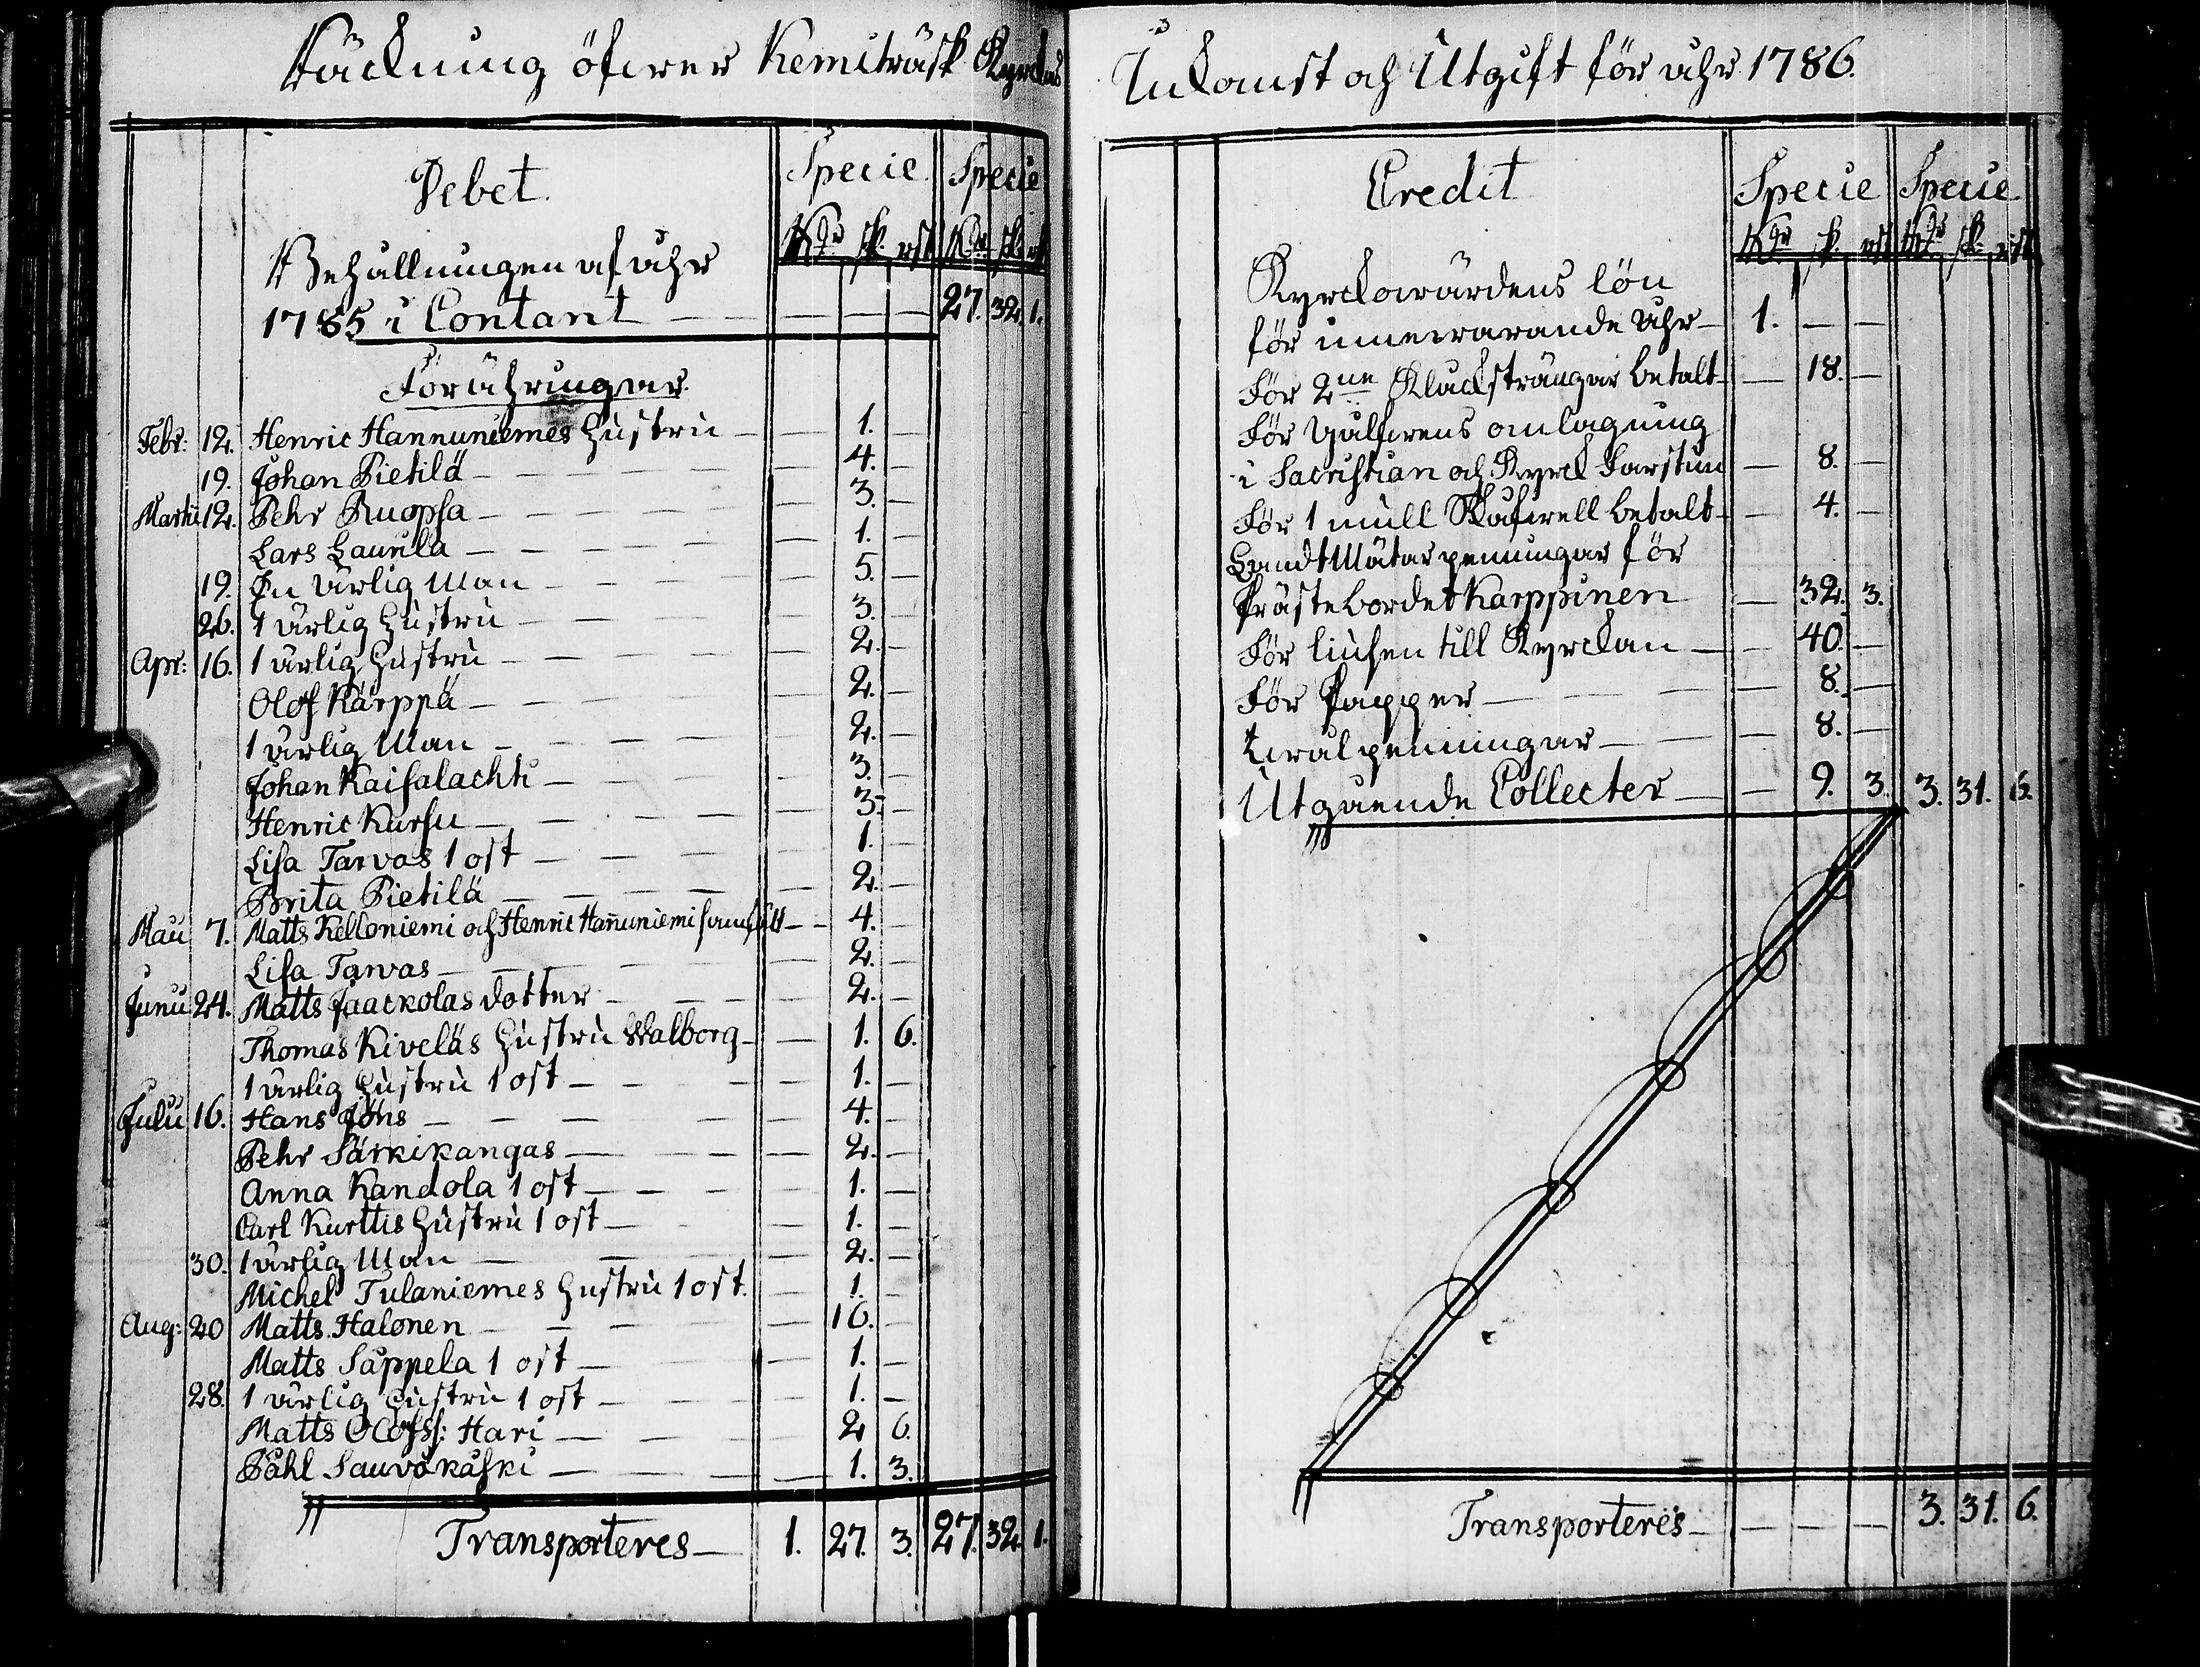 Räckning öfwer Kemiträsk Kyrckas
Debet.
Specie Specie
Rdr sk. rst Rdr sk. rst
Behållningen af åhr
1785 i Contant — — — — 27. 32. 1.
Förähringar.
Febr: 12. Henric Hannuniemes Hustru — — 1. —
19. Johan Pietilä — — 4. —
Martii 12. Pehr Ruopsa — — 3. —
Lars Laurila — — 1. —
19. En ärlig Man — — 5. —
26. 1 ärlig Hustru — — 3. —
Apr: 16. 1 ärlig Hustru — — 2. —
Olof Kärppä — — 2. —
1 ärlig Man — — 2. —
Johan Kaisalachti — — 3. —
Henric Kursu — — 3. —
Lisa Tarvas 1 ost — — 1. —
Brita Pietilä — — 2. —
Maii 7. Matts Kelloniemi och Henric Hañuniemi samfält — — 4. —
Lisa Tarvas — — 2. —
Junii 24. Matts Jaackolas dotter — — 2. —
Thomas Kiveläs Hustru Walborg — — 1. 6.
1 ärlig Hustru 1 ost — — 1. —
Julii 16. Hans Jöns — — 4. —
Pehr Särkikangas — — 2. —
Anna Kandola 1 ost — — 1. —
Carl Kurttis Hustru 1 ost — — 1. —
30. 1 ärlig Man — — 2. —
Michel Tulaniemes Hustru 1 ost. — 1. —
Aug: 20 Matts Halonen — — 16. —
Matts Säppelä 1 ost — — 1. —
28. 1 ärlig Hustru 1 ost — — 1. —
Matts Olofss: Hari — — 2 6.
Påhl Sauvokaski — — 1. 3.
Transporteres — 1. 27. 3. 27. 32. 1.
Inkomst och Utgift för åhr 1786.
Credit
Specie Specie
Rdr sk. rst Rdr sk. rst
Kyrckowärdens lön
för innewarande åhr — 1. — —
För 2ne Kläcksträngar betalt — — 18. —
För Golfwens omlagning
i Sacristian och Kyrck farstun — 8. —
För 1 mull Skofwell betalt — — 4. —
LandtMätar penningar för
Prästebordet Karppinen — 32. 3.
För liusen till Kyrckan — — 40. —
För Papper — — 8. —
Qwalpenningar — — 8. —
Utgående Collecter — — 9. 3. 3. 31. 6.
Transporteres — — — — 3. 31. 6.